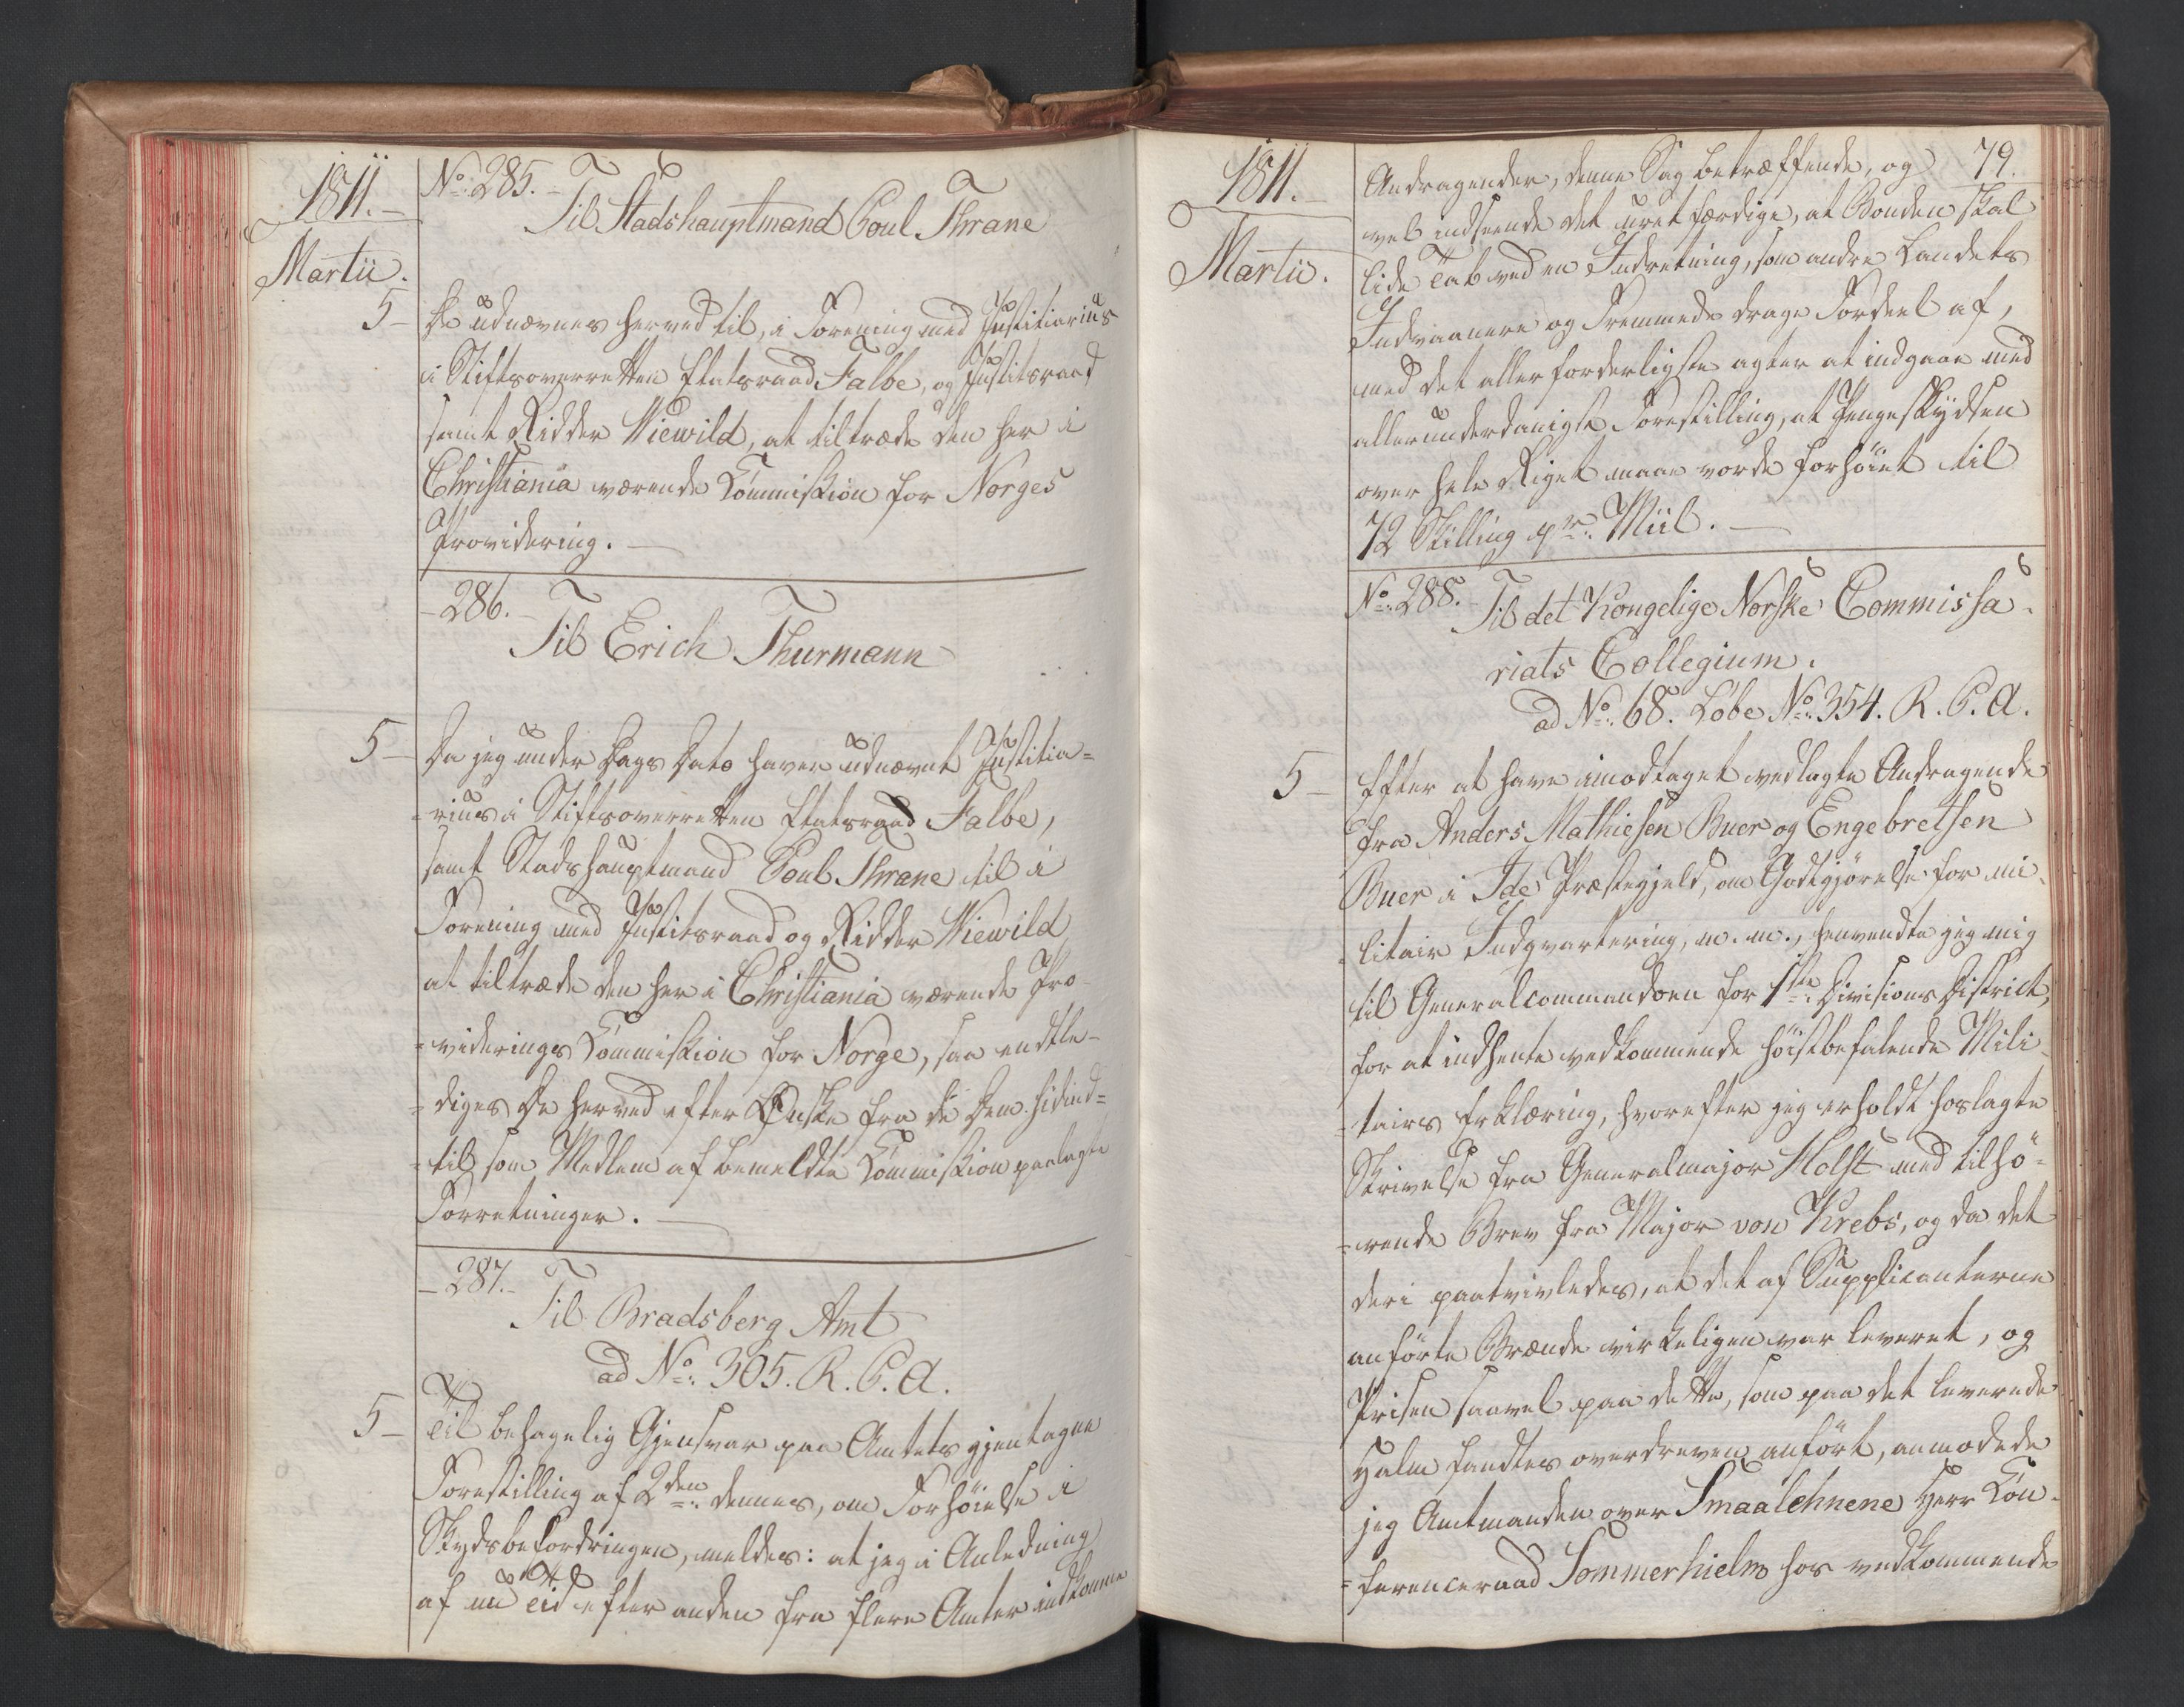 1811.
Martii.
No. 285.
Til Stadshauptmand Poul Thrane
5 De udnævnes herved til, i Forening med Justitiarius
i Stiftsoverretten Etatsraad Falbe, og Justitsraad
samt Ridder Wiewild, at tiltræde den her i
Christiania værende Kommission for Norges
Providering.
286.
Til Erich Thurmann
5 Da jeg under Dags Dato haver udnævnt Justitia=
=rius i Stiftsoverretten Etatsraad Falbe,
samt Stadshauptmand Poul Thrane til i
Forening med Justitsraad og Ridder Wiewild
at tiltræde den her i Christiania værende Pro
=viderings Kommission for Norge, saa entle-
=diges De herved efter Ønske fra de Dem hidind=
=til som Medlem af bemeldte Kommission paalagte
Forretninger.
287.
Til Bradsberg Amt
ad No. 305. R. P. A.
5 Til behagelig Gjensvar paa Amtets gjentagne
Forestilling af 2den dennes, om Forhöielse i
Skydsbefordringen, meldes: at jeg i Anledning
af en Tid efter anden fra flere Amter indkomne
1811.
Martii.
79.
Andragender, denne Sag betræffende, og
vel indseende det uretfærdige, at Bonden skal
lide Tab ved en Indretning, som andre Landets
Indvaanere og Fremmede drage Fordeel af,
med det allerforderligste agter at indgaae med
allerunderdanigst Forestilling, at Pengeskydsen
over hele Riget maae vorde forhöiet til
72 Skilling pr. Miil.
No. 288.
Til det Kongelige Norske Commissa-
riats Collegium.
ad No. 68. Löbe No. 354. R. P. A.
5 Efter at have imodtaget vedlagte Andragende
fra Anders Mathiesen Buer og Engebretsen
Buer i Ide Præstegjeld, om Godtgjörelse for mi-
litair Indqvartering, m. m., henvendte jeg mig
til Generalcommandoen for 1ste Divisions District,
for at indhente vedkommende höistbefalende Mili-
=tairs Erklæring, hvorefter jeg erholdt hoslagte
Skrivelse fra Generalmajor Holst med tilhö-
=rende Brev fra Major von Krebs, og da det
deri paatvivledes, at det af Supplicanterne
anförte Brænde virkeligen var leveret, og
Prisen saavel paa dette, som paa det leverede
Halm fandtes overdreven anfört, anmodede
jeg Amtmanden over Smaalehnene Herr Kon-
=ferenceraad Sommerhielm hos vedkommende